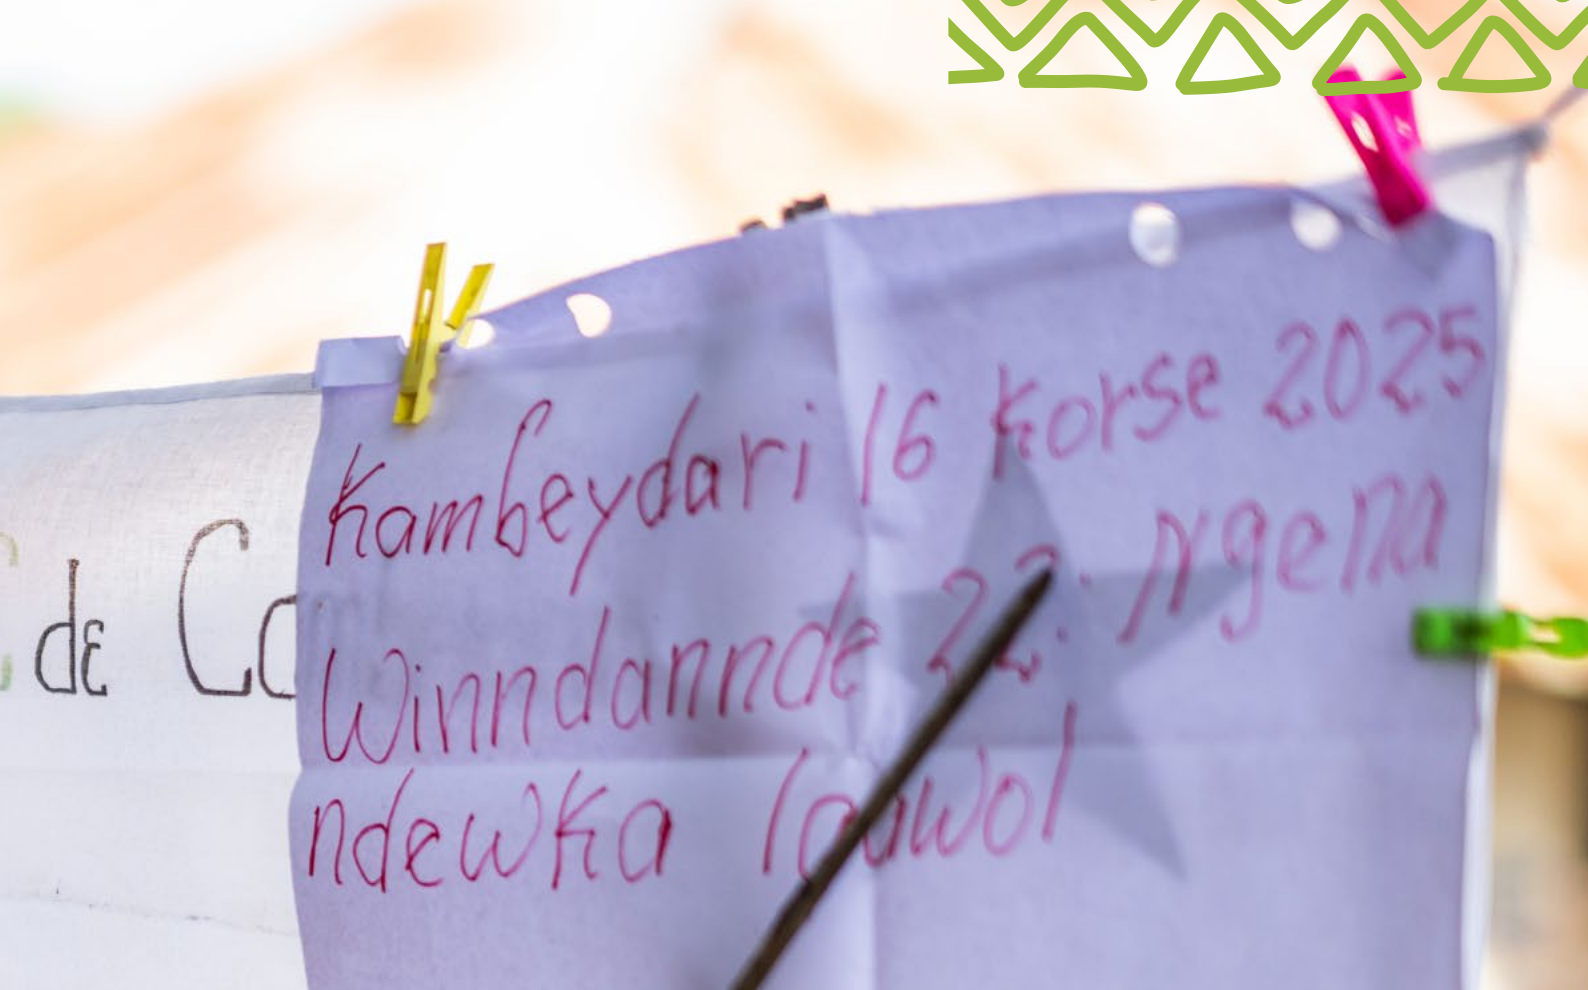 Kamɓeydari 16 Korse 2025
Winndannde 22: Ngena
ndewka laawol
de